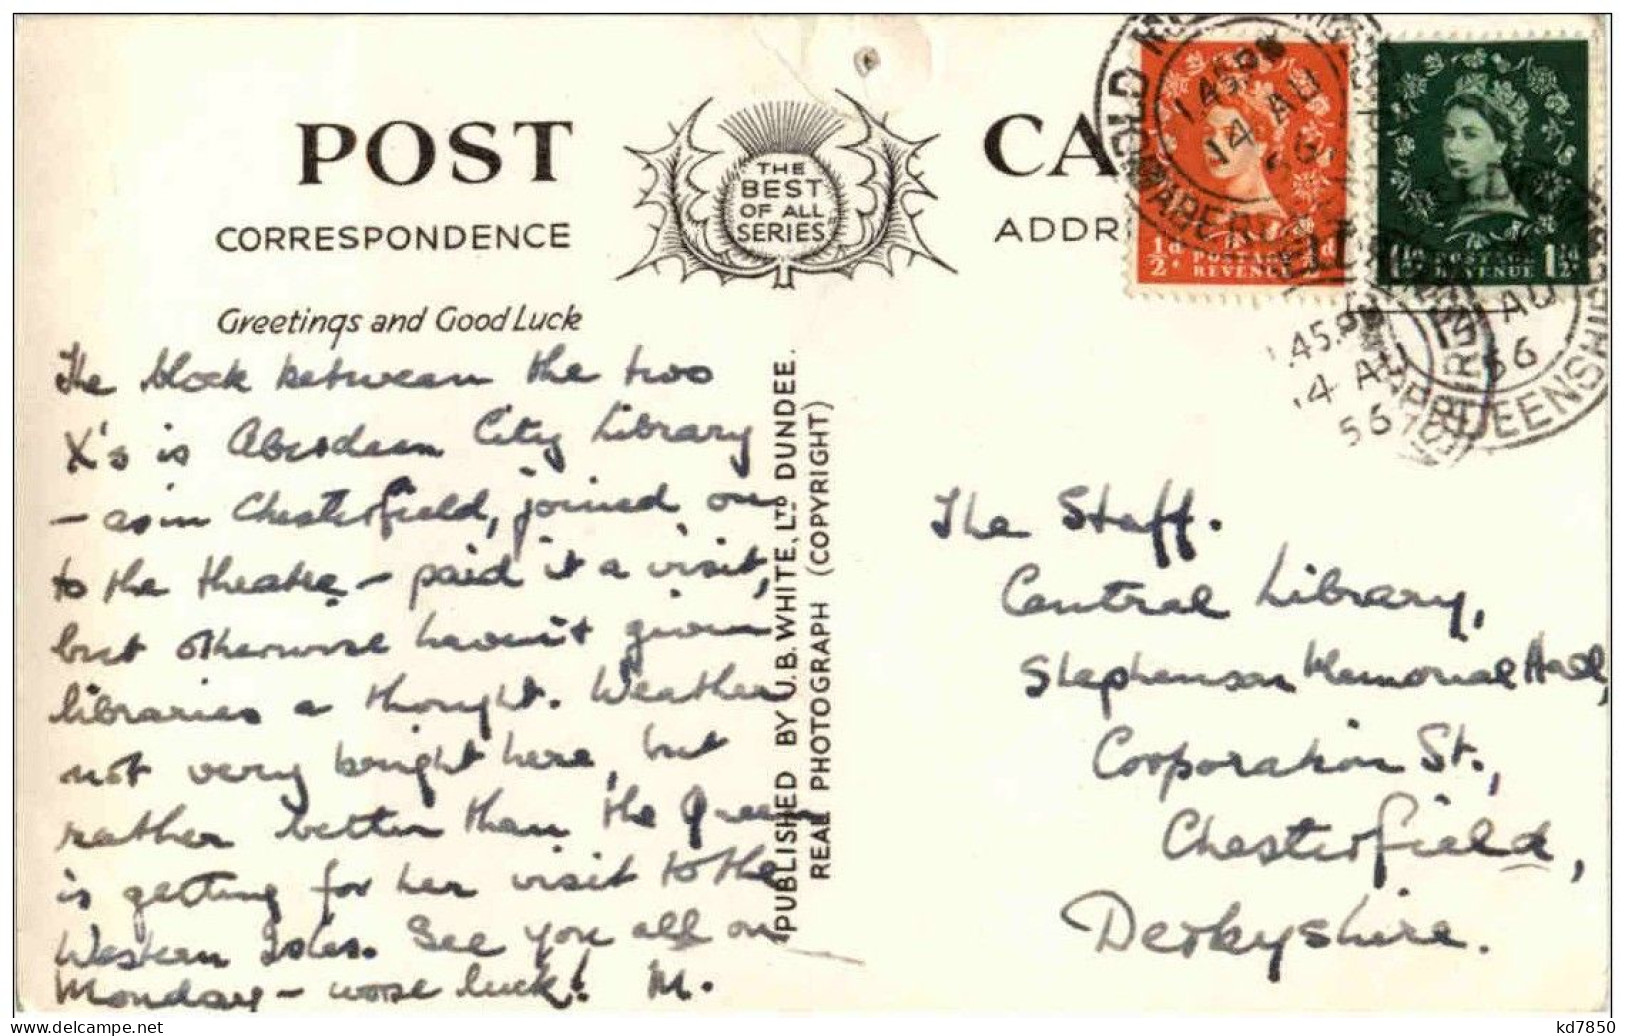 POST CA
THE
BEST
OF ALL
SERIES
CORRESPONDENCE
ADDR
Greetings and Good Luck
The block between the two
X's is Aberdeen City Library
- as in Chesterfield, joined on
to the theatre - paid it a visit,
but otherwise haven't given
libraries a thought. Weather
not very bright here, but
rather better than the Queen
is getting for her visit to the
Western Isles. See you all on
Monday - worse luck! M.
PUBLISHED BY U.B. WHITE, LTD DUNDEE.
REAL PHOTOGRAPH (COPYRIGHT)
1.45 PM
14 AU
56
ABERDEENSHIRE
½d POSTAGE ½d
REVENUE
1½d POSTAGE 1½d
REVENUE
1.45 PM
14 AU
56
AU
56
The Staff.
Central Library,
Stephenson Memorial Hall,
Corporation St.,
Chesterfield,
Derbyshire.
kd7850